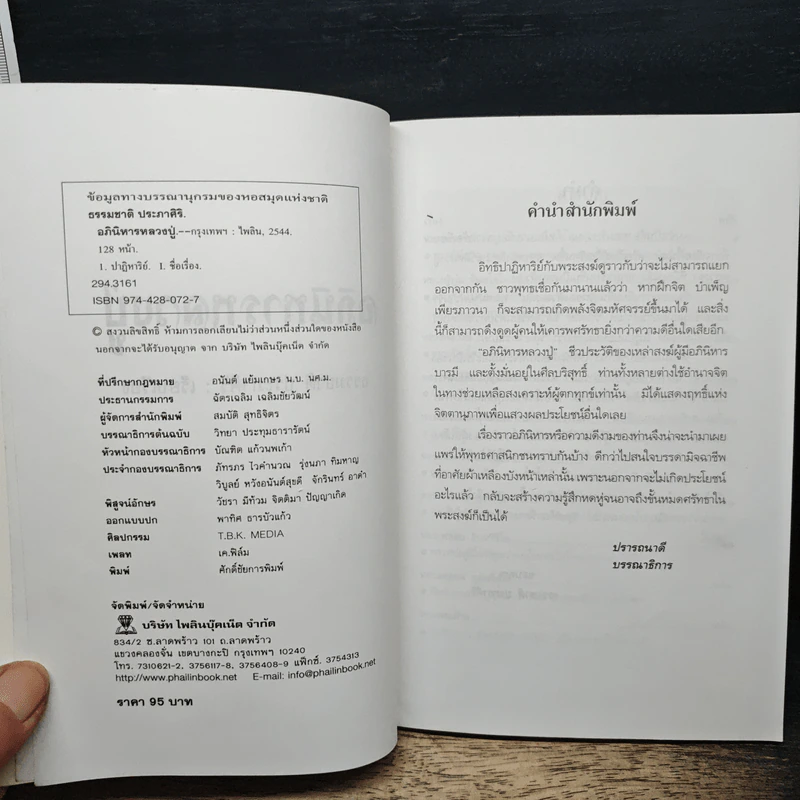 ข้อมูลทางบรรณานุกรมของหอสมุดแห่งชาติ
ธรรมชาติ ประภาศิริ.
อภินิหารหลวงปู่.--กรุงเทพฯ : ไพลิน, 2544.
128 หน้า.
1. ปาฏิหาริย์. I. ชื่อเรื่อง.
294.3161
ISBN 974-428-072-7
© สงวนลิขสิทธิ์ ห้ามการลอกเลียนไม่ว่าส่วนหนึ่งส่วนใดของหนังสือ
นอกจากจะได้รับอนุญาต จาก บริษัท ไพลินบุ๊คเน็ต จำกัด
ที่ปรึกษากฎหมาย อนันต์ แย้มเกษร น.บ. นศ.ม.
ประธานกรรมการ ฉัตรเฉลิม เฉลิมชัยวัฒน์
ผู้จัดการสำนักพิมพ์ สมบัติ สุทธิจิตร
บรรณาธิการต้นฉบับ วิทยา ประทุมธารารัตน์
หัวหน้ากองบรรณาธิการ บัณฑิต แก้วนพเก้า
ประจำกองบรรณาธิการ ภัทรภร ไวคำนวณ รุ่งนภา ทิมหาญ
วิบูลย์ หวังอนันต์สุขดี จักรินทร์ อาดำ
พิสูจน์อักษร วัชรา มีท้วม จิตติมา ปัญญาเกิด
ออกแบบปก พาทิศ ธารบัวแก้ว
ศิลปกรรม T.B.K. MEDIA
เพลท เค.ฟิล์ม
พิมพ์ ศักดิ์ชัยการพิมพ์
จัดพิมพ์/จัดจำหน่าย
บริษัท ไพลินบุ๊คเน็ต จำกัด
834/2 ซ.ลาดพร้าว 101 ถ.ลาดพร้าว
แขวงคลองจั่น เขตบางกะปิ กรุงเทพฯ 10240
โทร. 7310621-2, 3756117-8, 3756408-9 แฟ็กซ์. 3754313
http://www.phailinbook.net E-mail: info@phailinbook.net
ราคา 95 บาท
คำนำสำนักพิมพ์
อิทธิปาฏิหาริย์กับพระสงฆ์ดูราวกับว่าจะไม่สามารถแยก
ออกจากกัน ชาวพุทธเชื่อกันมานานแล้วว่า หากฝึกจิต บำเพ็ญ
เพียรภาวนา ก็จะสามารถเกิดพลังจิตมหัศจรรย์ขึ้นมาได้ และสิ่ง
นี้ก็สามารถดึงดูดผู้คนให้เคารพศรัทธายิ่งกว่าความดีอื่นใดเสียอีก
"อภินิหารหลวงปู่" ชีวประวัติของเหล่าสงฆ์ผู้มีอภินิหาร
บารมี และตั้งมั่นอยู่ในศีลบริสุทธิ์ ท่านทั้งหลายต่างใช้อำนาจจิต
ในทางช่วยเหลือสงเคราะห์ผู้ตกทุกข์เท่านั้น มิได้แสดงฤทธิ์แห่ง
จิตตานุภาพเพื่อแสวงผลประโยชน์อื่นใดเลย
เรื่องราวอภินิหารหรือความดีงามของท่านจึงน่าจะนำมาเผย
แพร่ให้พุทธศาสนิกชนทราบกันบ้าง ดีกว่าไปสนใจบรรดามิจฉาชีพ
ที่อาศัยผ้าเหลืองบังหน้าเหล่านั้น เพราะนอกจากจะไม่เกิดประโยชน์
อะไรแล้ว กลับจะสร้างความรู้สึกหดหู่จนอาจถึงขั้นหมดศรัทธาใน
พระสงฆ์ก็เป็นได้
ปรารถนาดี
บรรณาธิการ